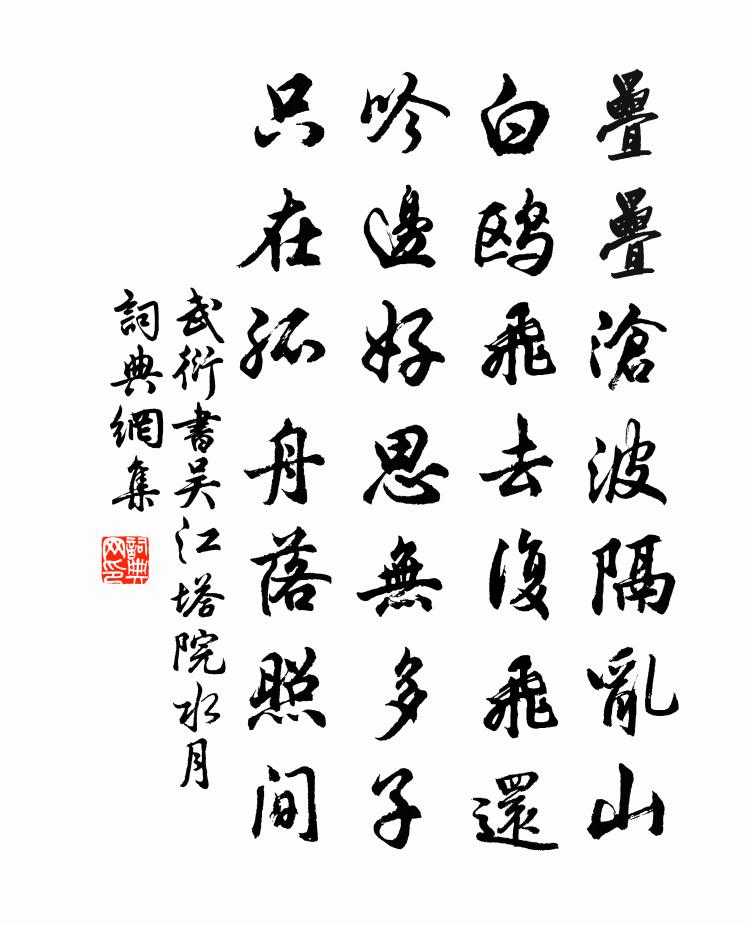 疊疊滄波隔亂山
白鸥飛去復飛還
吟邊好思無多子
只在孤舟落照間
武衍書吴江塔院水月
詞典網集
詞典网印